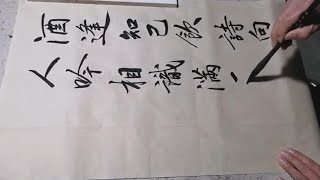 酒逢知己飲詩向
人吟相識滿